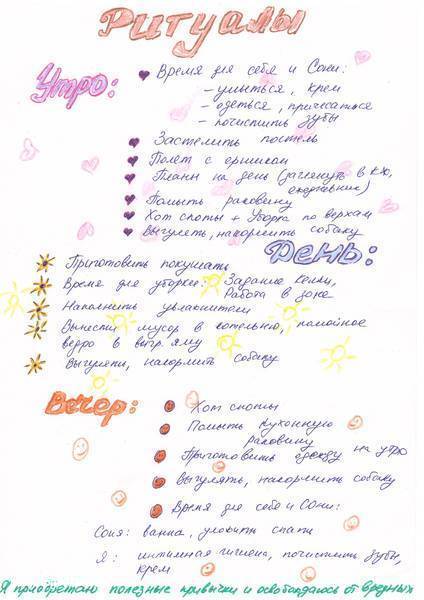 Ритуалы
Утро:
Время для себя и Сони:
- умыться, крем
- одеться, причесаться
- почистить зубы
Застелить постель
Полет с ершиком
Планы на день (заглянуть в КЖ,
ежедневник)
Помыть раковину
Хот споты + Уборка по верхам
Выгулять, накормить собаку
День:
Приготовить покушать
Время для уборки: Задание Келли,
Работа в зоне
Наполнить увлажнители
Вынести мусор в котельню, помойное
ведро в выгр. яму
Выгулять, накормить собаку
Вечер:
Хот споты
Помыть кухонную
раковину
Приготовить одежду на утро
Выгулять, накормить собаку
Время для себя и Сони:
Соня: ванна, уложить спать
Я: интимная гигиена, почистить зубы,
крем
Я приобретаю полезные привычки и освобождаюсь от вредных